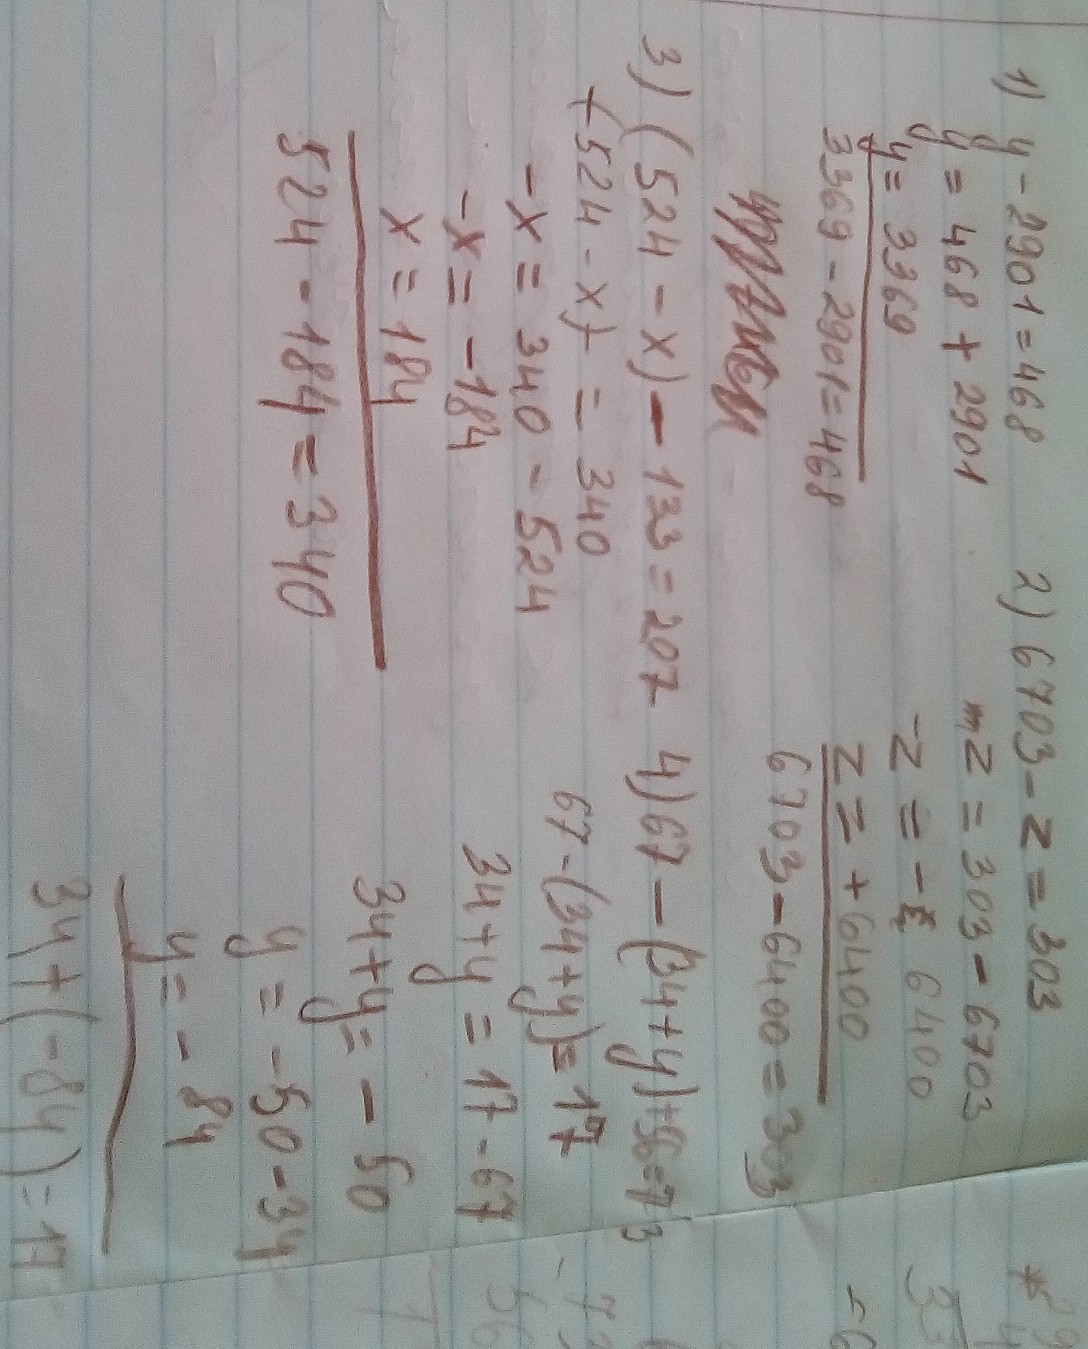 1) y - 2901 = 468
y = 468 + 2901
y = 3369
3369 - 2901 = 468
2) 6703 - z = 303
z = 303 - 6703
-z = - 6400
z = + 6400
6703 - 6400 = 303
3) (524 - x) - 133 = 207
(524 - x) = 340
-x = 340 - 524
-x = -184
x = 184
524 - 184 = 340
4) 67 - (34 + y) + 56 = 73
67 - (34 + y) = 17
34 + y = 17 - 67
34 + y = - 50
y = -50 - 34
y = - 84
34 + (-84) = 17